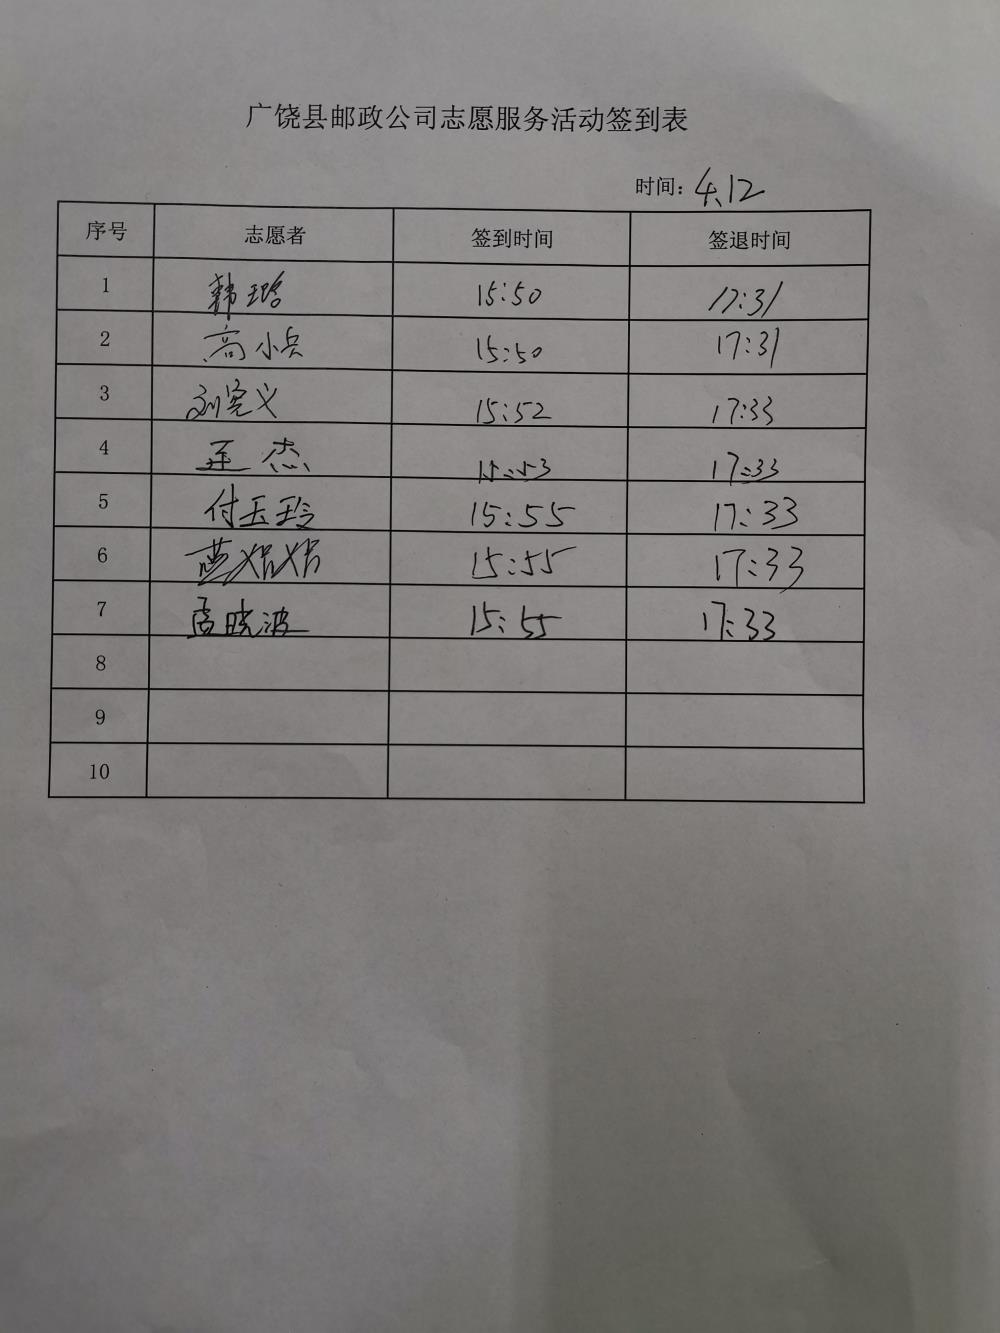 广饶县邮政公司志愿服务活动签到表
时间：4.12
序号 志愿者 签到时间 签退时间
1 韩璐 15:50 17:31
2 高小兵 15:50 17:31
3 刘宪义 15:52 17:33
4 王杰 15:53 17:33
5 付玉玲 15:55 17:33
6 15:55 17:33
7 孟晓波 15:55 17:33
8
9
10